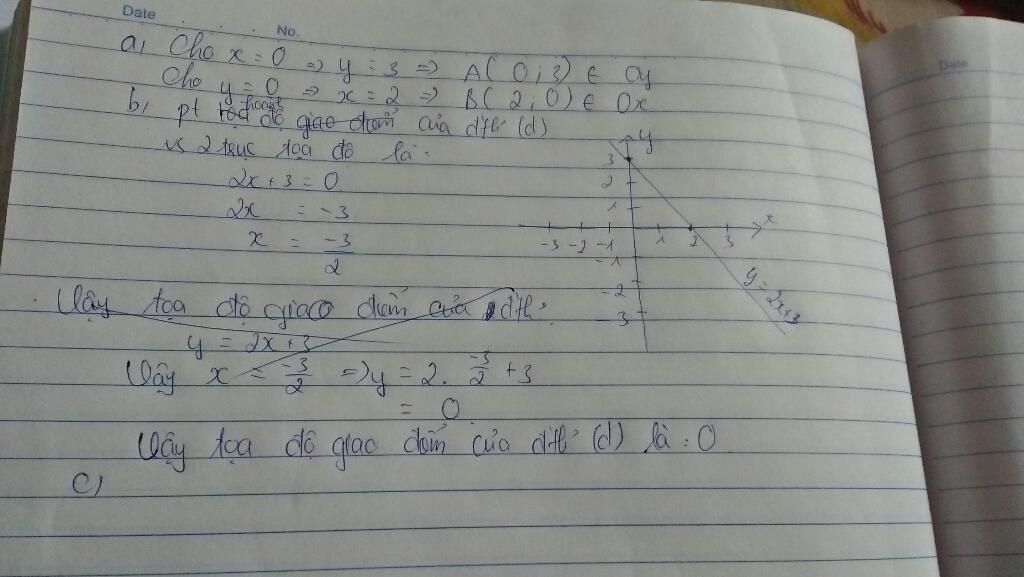 Date
No.
a, Cho x = 0 => y = 3 => A( 0 ; 3) ∈ Oy
Cho y = 0 => x = 2 => B( 2 ; 0) ∈ Ox
b, pt hoành độ giao điểm của đths (d)
vs 2 trục tọa độ là:
2x + 3 = 0
2x = -3
x = -3/2
y
3
2
1
-3 -2 -1 1 2 3 x
-1
-2
-3
y = 2x+3
Vậy tọa độ giao điểm của đths
y = 2x + 3
Vậy x = -3/2 => y = 2. -3/2 + 3
= 0
Vậy tọa độ giao điểm của đths (d) là : 0
c)
Date